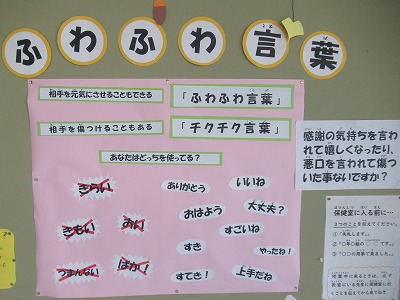 ふわふわ言葉
相手を元気にさせることもできる
「ふわふわ言葉」
相手を傷つけることもある
「チクチク言葉」
あなたはどっちを使ってる?
きらい
ありがとう
いいね
きもい
おい
おはよう
大丈夫?
すごいね
すき
やったね!
つまんない
ばか!
すてき!
上手だね
感謝の気持ちを言わ
れて嬉しくなったり、
悪口を言われて傷つ
いた事ないですか?
保健室に入る前に…
3つのことを伝えてください。
①「失礼します。」
②「○年○組の
です。」
③「○○の用事で来ました。」